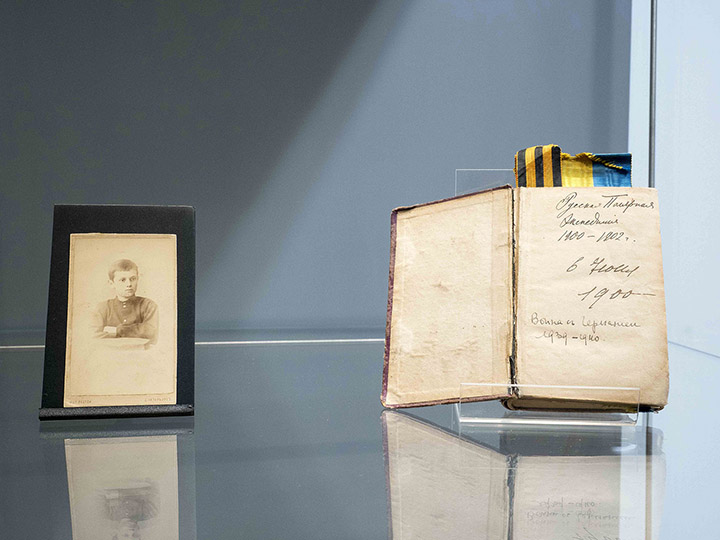 Русская Полярная
Экспедиція
1900–1902 г.
6 Июня
1900
Война с Германіей
1939–1940.